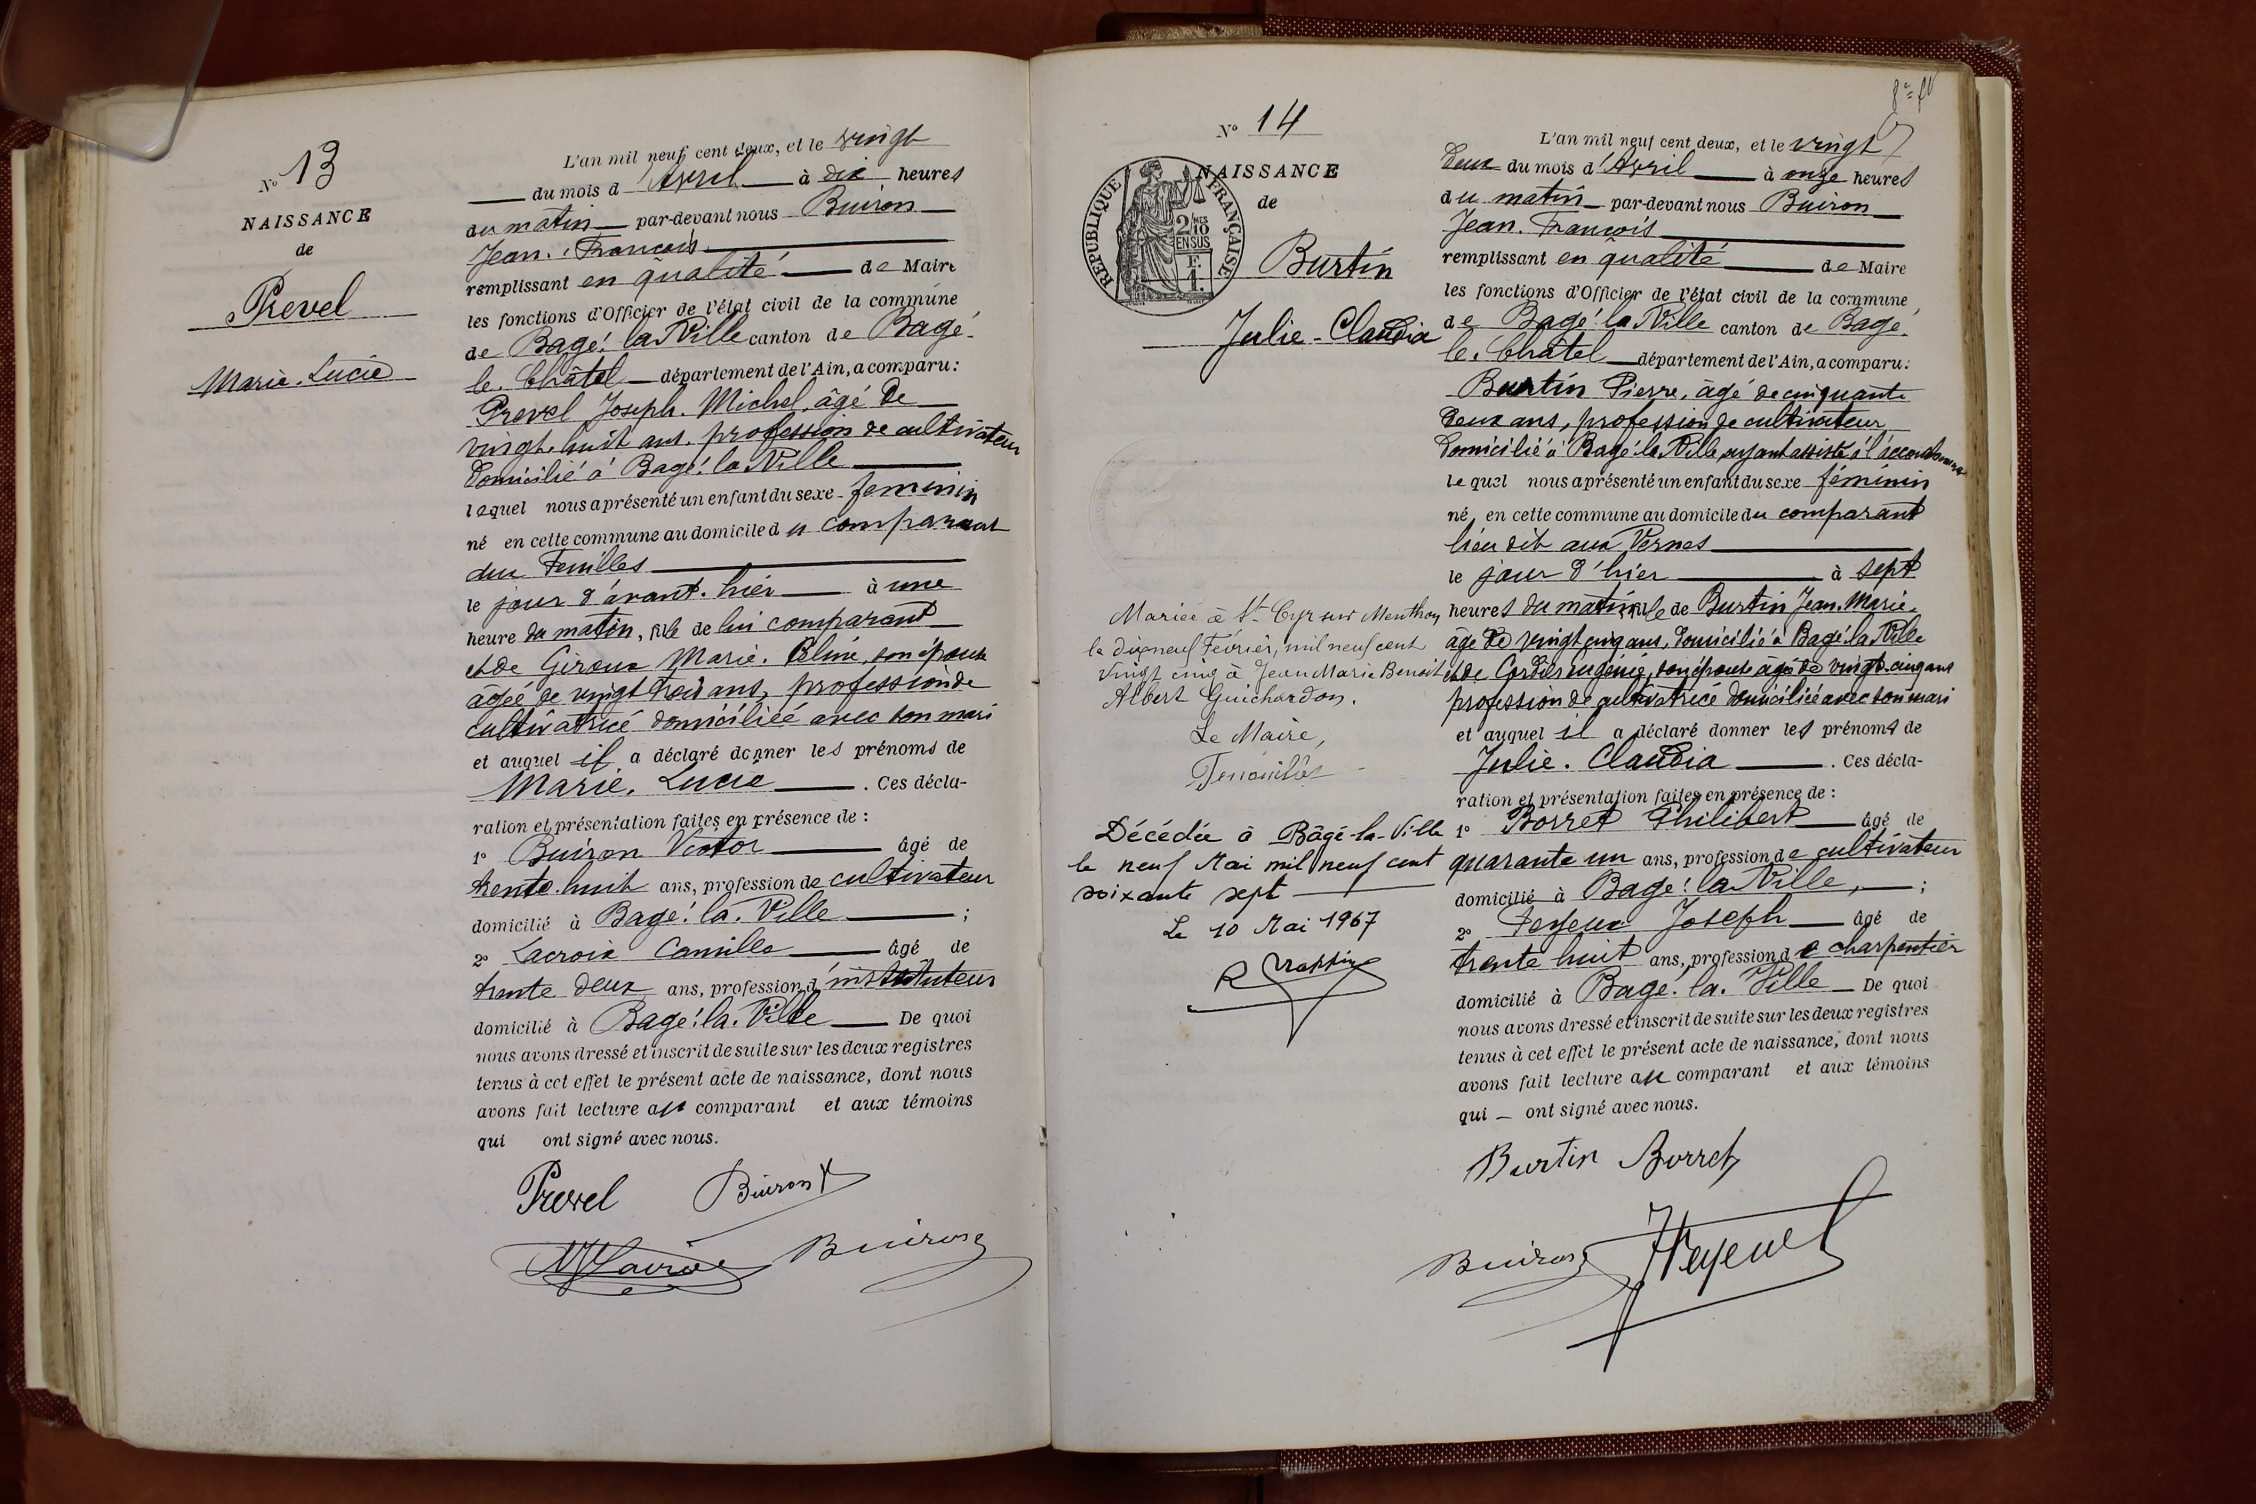 N° 13
NAISSANCE
de
Prevel
Marie. Lucie
L'an mil neuf cent deux, et le vingt
du mois d'Avril à dix heures
du matin par-devant nous Buiron
Jean. François
remplissant en qualité de Maire
les fonctions d'Officier de l'état civil de la commune
de Bagé. la Ville canton de Bagé.
le. Châtel département de l'Ain, a comparu :
Prevel Joseph. Michel, âgé de
vingt. huit ans. profession de cultivateur
domicilié à Bagé. la Ville
lequel nous a présenté un enfant du sexe féminin
né en cette commune au domicile du comparant
aux Feuilles
le jour d'avant. hier à une
heure du matin, fille de lui comparant
et de Giroux Marie. Céline, son épouse
agée de vingt trois ans, profession de
cultivatrice domiciliée avec son mari
et auquel il a déclaré donner les prénoms de
Marie. Lucie. Ces décla-
ration et présentation faites en présence de :
1° Buiron Victor âgé de
trente. huit ans, profession de cultivateur
domicilié à Bagé. la. Ville ;
2° Lacroix Camille âgé de
trente deux ans, profession d'instituteur
domicilié à Bagé. la. Ville De quoi
nous avons dressé et inscrit de suite sur les deux registres
tenus à cet effet le présent acte de naissance, dont nous
avons fait lecture au comparant et aux témoins
qui ont signé avec nous.
Prevel Buiron
Lacroix Buiron
8e
N° 14
NAISSANCE
de
RÉPUBLIQUE FRANÇAISE
2/10 MES
EN SUS
F.
1.
Burtin
Julie - Claudia
Mariée à St. Cyr sur Menthon
le dix neuf Février, mil neuf cent
vingt cinq à Jean Marie Benoit
Albert Guichardon.
Le Maire,
Décédée à Bâgé-la-Ville
le neuf Mai mil neuf cent
soixante sept
Le 10 Mai 1967
L'an mil neuf cent deux, et le vingt
deux du mois d'Avril à onze heures
du matin par-devant nous Buiron
Jean. François
remplissant en qualité de Maire
les fonctions d'Officier de l'état civil de la commune
de Bagé. la Ville canton de Bagé.
le. Châtel département de l'Ain, a comparu :
Burtin Pierre, âgé de cinquante
deux ans, profession de cultivateur
domicilié à Bagé. la Ville, ayant assisté à l'accouchement
lequel nous a présenté un enfant du sexe féminin
né en cette commune au domicile du comparant
lieu dit aux Vernes
le jour d'hier à sept
heures du matin, fille de Burtin Jean. Marie.
âgé de vingt cinq ans, domicilié à Bagé. la Ville
et de Cordier Eugénie, son épouse âgée de vingt. cinq ans
profession de cultivatrice domiciliée avec son mari
et auquel il a déclaré donner les prénoms de
Julie. Claudia. Ces décla-
ration et présentation faites en présence de :
1° Borret Philibert âgé de
quarante un ans, profession de cultivateur
domicilié à Bagé. la Ville, ;
2° Feyeux Joseph âgé de
trente huit ans, profession de charpentier
domicilié à Bagé. la. Ville De quoi
nous avons dressé et inscrit de suite sur les deux registres
tenus à cet effet le présent acte de naissance, dont nous
avons fait lecture au comparant et aux témoins
qui ont signé avec nous.
Burtin Borret
Buiron